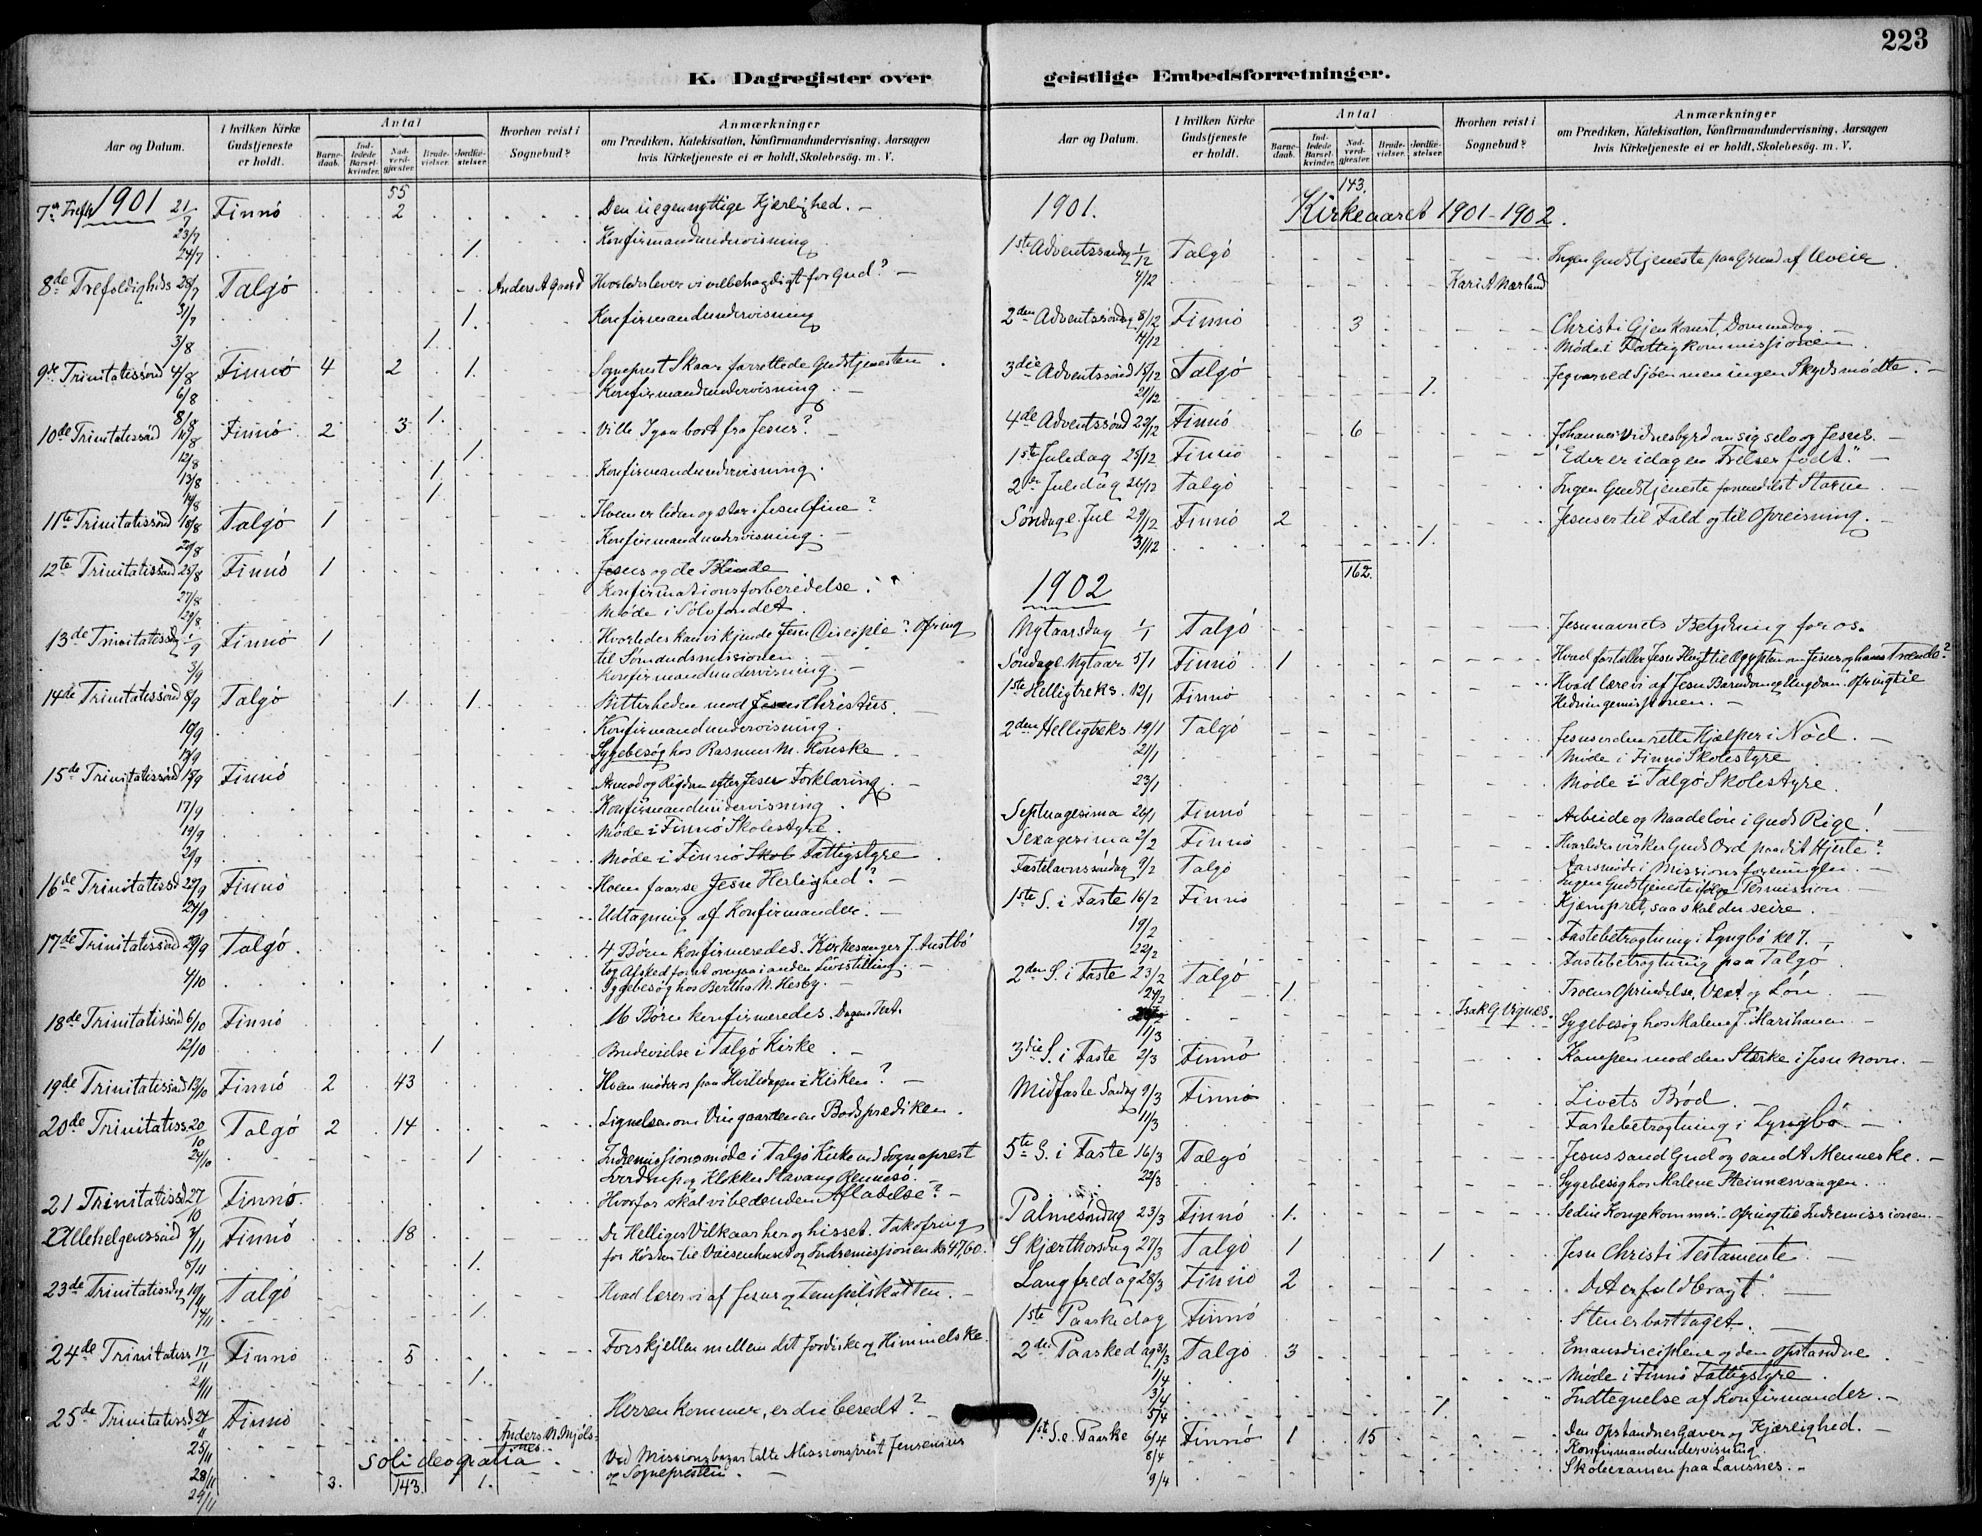 223
K. Dagregister over geistlige Embedsforretninger.
Aar og Datum.
I hvilken Kirke Gudstjeneste er holdt.
Antal
Barnedaab.
Indledede Barselkvinder.
Nadverdgjæster.
Brudevielser.
Jordfæstelser.
Hvorhen reist i Sognebud?
Anmærkninger
om Prædiken, Katekisation, Konfirmandundervisning, Aarsagen
hvis Kirketjeneste ei er holdt, Skolebesøg. m. V.
55
7de Trefh 1901 21/7 Finnö 2 Den uegennyttige Kjærlighed. -
23/7 Konfirmandundervisning
24/7 1.
8de Trefoldigheds 28/7 Talgö Anders A Gaard Hvorledes lever vi velbehagligt for Gud? -
31/7 1. Konfirmandundervisning
3/8 1.
9de Trinitatissönd 4/8 Finnö 4 2 1. Sogneprest Skaar forrettede Gudstjenesten
6/8 Konfirmandundervisning
8/8 1.
10de Trinitatissöd 11/8 Finnö 2 3 Ville I gaa bort fra Jesus? -
12/8 1
13/8 1 Konfirmandundervisning.
14/8 1.
11te Trinitatissönd 18/8 Talgö 1 Hvem er liden og stor i Jesu Öine?
20/8 Konfirmandundervisning. -
12te Trinitatissönd 25/8 Finnö 1 Jesus og de Blinde
27/8 Konfirmationsforberedelse.
29/8 Møde i Sölvfondet.
13de Trinitatissdg 1/9 Finnö 1 Hvorledes kan vi kjende Jesu Disciple? Ofring
til Sömandsmissionen. -
3/9 Konfirmandundervisning. -
14de Trinitatissönd 8/9 Talgö 1 1. Bitterheden mod Jesus Christus.
10/9 Konfirmandundervisning.
Sygebesög hos Rasmus M.
15de Trinitatissönd 15/9 Finnö Armod og Rigdom efter Jesu Forklaring. -
17/9 Konfirmandundervisning
19/9 Møde i Finnö Skolestyre.
20/9 Møde i Finnö Fattigstyre
16de Trinitatissd 22/9 Finnö Hvem faar se Jesu Herlighed? -
24/9 Udtagning af Konfirmander. -
17de Trinitatissönd 29/9 Talgö. 4 Börn konfirmeredes. Kirkesanger J. Austbö
tog Afsked for at overgaa i anden Livsstilling. -
4/10 Sygebesög hos Bertha N. Hesby. -
18de Trinitatissönd 6/10 Finnö 16 Börn konfirmeredes. Dagens Text.
12/10 1 Brudevielse i Talgö Kirke. -
19de Trinitatissönd 13/10 Finnö 2 43 Hvem møder os paa Hviledagen i Kirken? -
20de Trinitatiss. 20/10 Talgö 2 14 Lignelsen om Vingaarden en Bodsprædiken.
24/10 1 Indremissionsmøde i Talgö Kirke ved Sogneprest
Sverdrup og Klokker Stavang Rennesö.
21 Trinitatissd 27/10 Finnö. Hvorfor skal vi bede om den Afladelse? -
22 Allehelgenssönd 3/11 Finnö 18 De Helliges Vilkaar her og hisset. Takofring
5/11 1. for Hösten til Vaisenhuset og Indremissionen Kr 47,60.
23de Trinitatissdg 10/11 Talgö Hvad lærer vi af Jesus og Tempelskatten. -
14/11 1.
24de Trinitatiss 17/11 Finnö 5 Forskjellen mellem det Jordiske og Himmelske.
21/11 1.
25de Trinitatissd 24/11 Finnö Herren kommer, er du beredt? -
25/11 Anders N. Mjölsnes.
28/11 Soli deo gloria Ved Missionsbazar talte Missionsprest Jensenius
29/11 3. 143. 1. og Sognepresten. -
Aar og Datum.
I hvilken Kirke Gudstjeneste er holdt.
Antal
Barnedaab.
Indledede Barselkvinder.
Nadverdgjæster.
Brudevielser.
Jordfæstelser.
Hvorhen reist i Sognebud?
Anmærkninger
om Prædiken, Katekisation, Konfirmandundervisning, Aarsagen
hvis Kirketjeneste ei er holdt, Skolebesög. m. V.
143.
1901. Kirkeaaret 1901-1902.
1ste Adventssöndag 1/12 Talgö Ingen Gudstjeneste paa Grund af Uveir.
4/12 Kari A Nærland
2den Adventssöndag 8/12 Finnö 3 Christi Gjenkomst, Dommedag. -
11/12 Møde i Fattigkommissionen.
3die Adventssönd 15/12 Talgö Jeg var ved Sjöen men ingen Skyds mödte. -
21/12 1.
4de Adventssönd 22/12 Finnö 6 Johannes Vidnesbyrd om sig selv og Jesus. -
1ste Juledag 25/12 Finnö "Eder er idag en Frelser födt." -
2den Juledag 26/12 Talgö Ingen Gudstjeneste formedelst Storm -
Söndag e. Jul 29/12 Finnö 2 Jesus er til Fald og til Opreisning. -
31/12 1.
162.
1902
Nytaarsdag 1/1 Talgö Jesunavnets Betydning for os.
Söndag e. Nytaar 5/1 Finnö 1 Hvad fortæller Jesu Flugt til Ægypten om Jesus og hans Frænde?
1ste Helligtreks. 12/1 Finnö Hvad lære vi af Jesu Barndom og Ungdom. Ofring til
Hedningemissionen. -
2den Helligtreks 19/1 Talgö Jesus er den rette Hjælper i Nöd. -
21/1 Møde i Finnö Skolestyre
23/1 Møde i Talgö Skolestyre.
Septuagesima 26/1 Finnö Arbeide og Naadelön i Guds Rige!
Sexagesima 2/2 Finnö Hvorledes virker Guds Ord paa dit Hjerte?
Aarsmöde i Missionsforeningen. -
Fastelavnssöndag 9/2 Talgö Ingen Gudstjeneste ifölge Permission -
1ste S. i Faste 16/2 Finnö Kjæmp ret, saa skal du seire. -
19/2 Fastebetragtning i Lyngbö kl 7. -
22/2 Fastebetragtning paa Talgö
2den S. i Faste 23/2 Talgö Troens Oprindelse, Vext og Lön. -
24/2 1. Isak G Vignes. Sygebesög hos Malene J. Marihanen -
11/3
3die S. i Faste 2/3 Finnö Kampen mod den Stærke i Jesu Navn. -
Midfaste Söndag 9/3 Finnö Livets Bröd. -
11/3 Fastebetragtning i Lyngbö. -
5te S. i Faste 16/3 Talgö Jesus sand Gud og sandt Menneske. -
22/3 Sygebesög hos Malene Steinnesvaagen.
Palmesöndag 23/3 Finnö 1. Se din Konge kommer. - Ofring til Indremissionen. -
Skjærthorsdag 27/3 Talgö 1 1 Jesu Christi Testamente. -
Langfredag 28/3 Finnö 2 "Det er fuldbragt" -
1ste Paaskedag Finnö Stenen borttaget. -
2den Paaskedag 31/3 Talgö 3 Emausdisciplene og den Opstandne.
1/4 Møde i Finnö Fattigstyre
3/4 Indtegnelse af Konfirmander. -
5/4 1.
1ste S. e. Paaske 6/4 Finnö 1 15 Den Opstandnes Gaver og Kjærlighed.
8/4 Konfirmandundervisning.
9/4 Skoleexamen paa Ladsnes. -